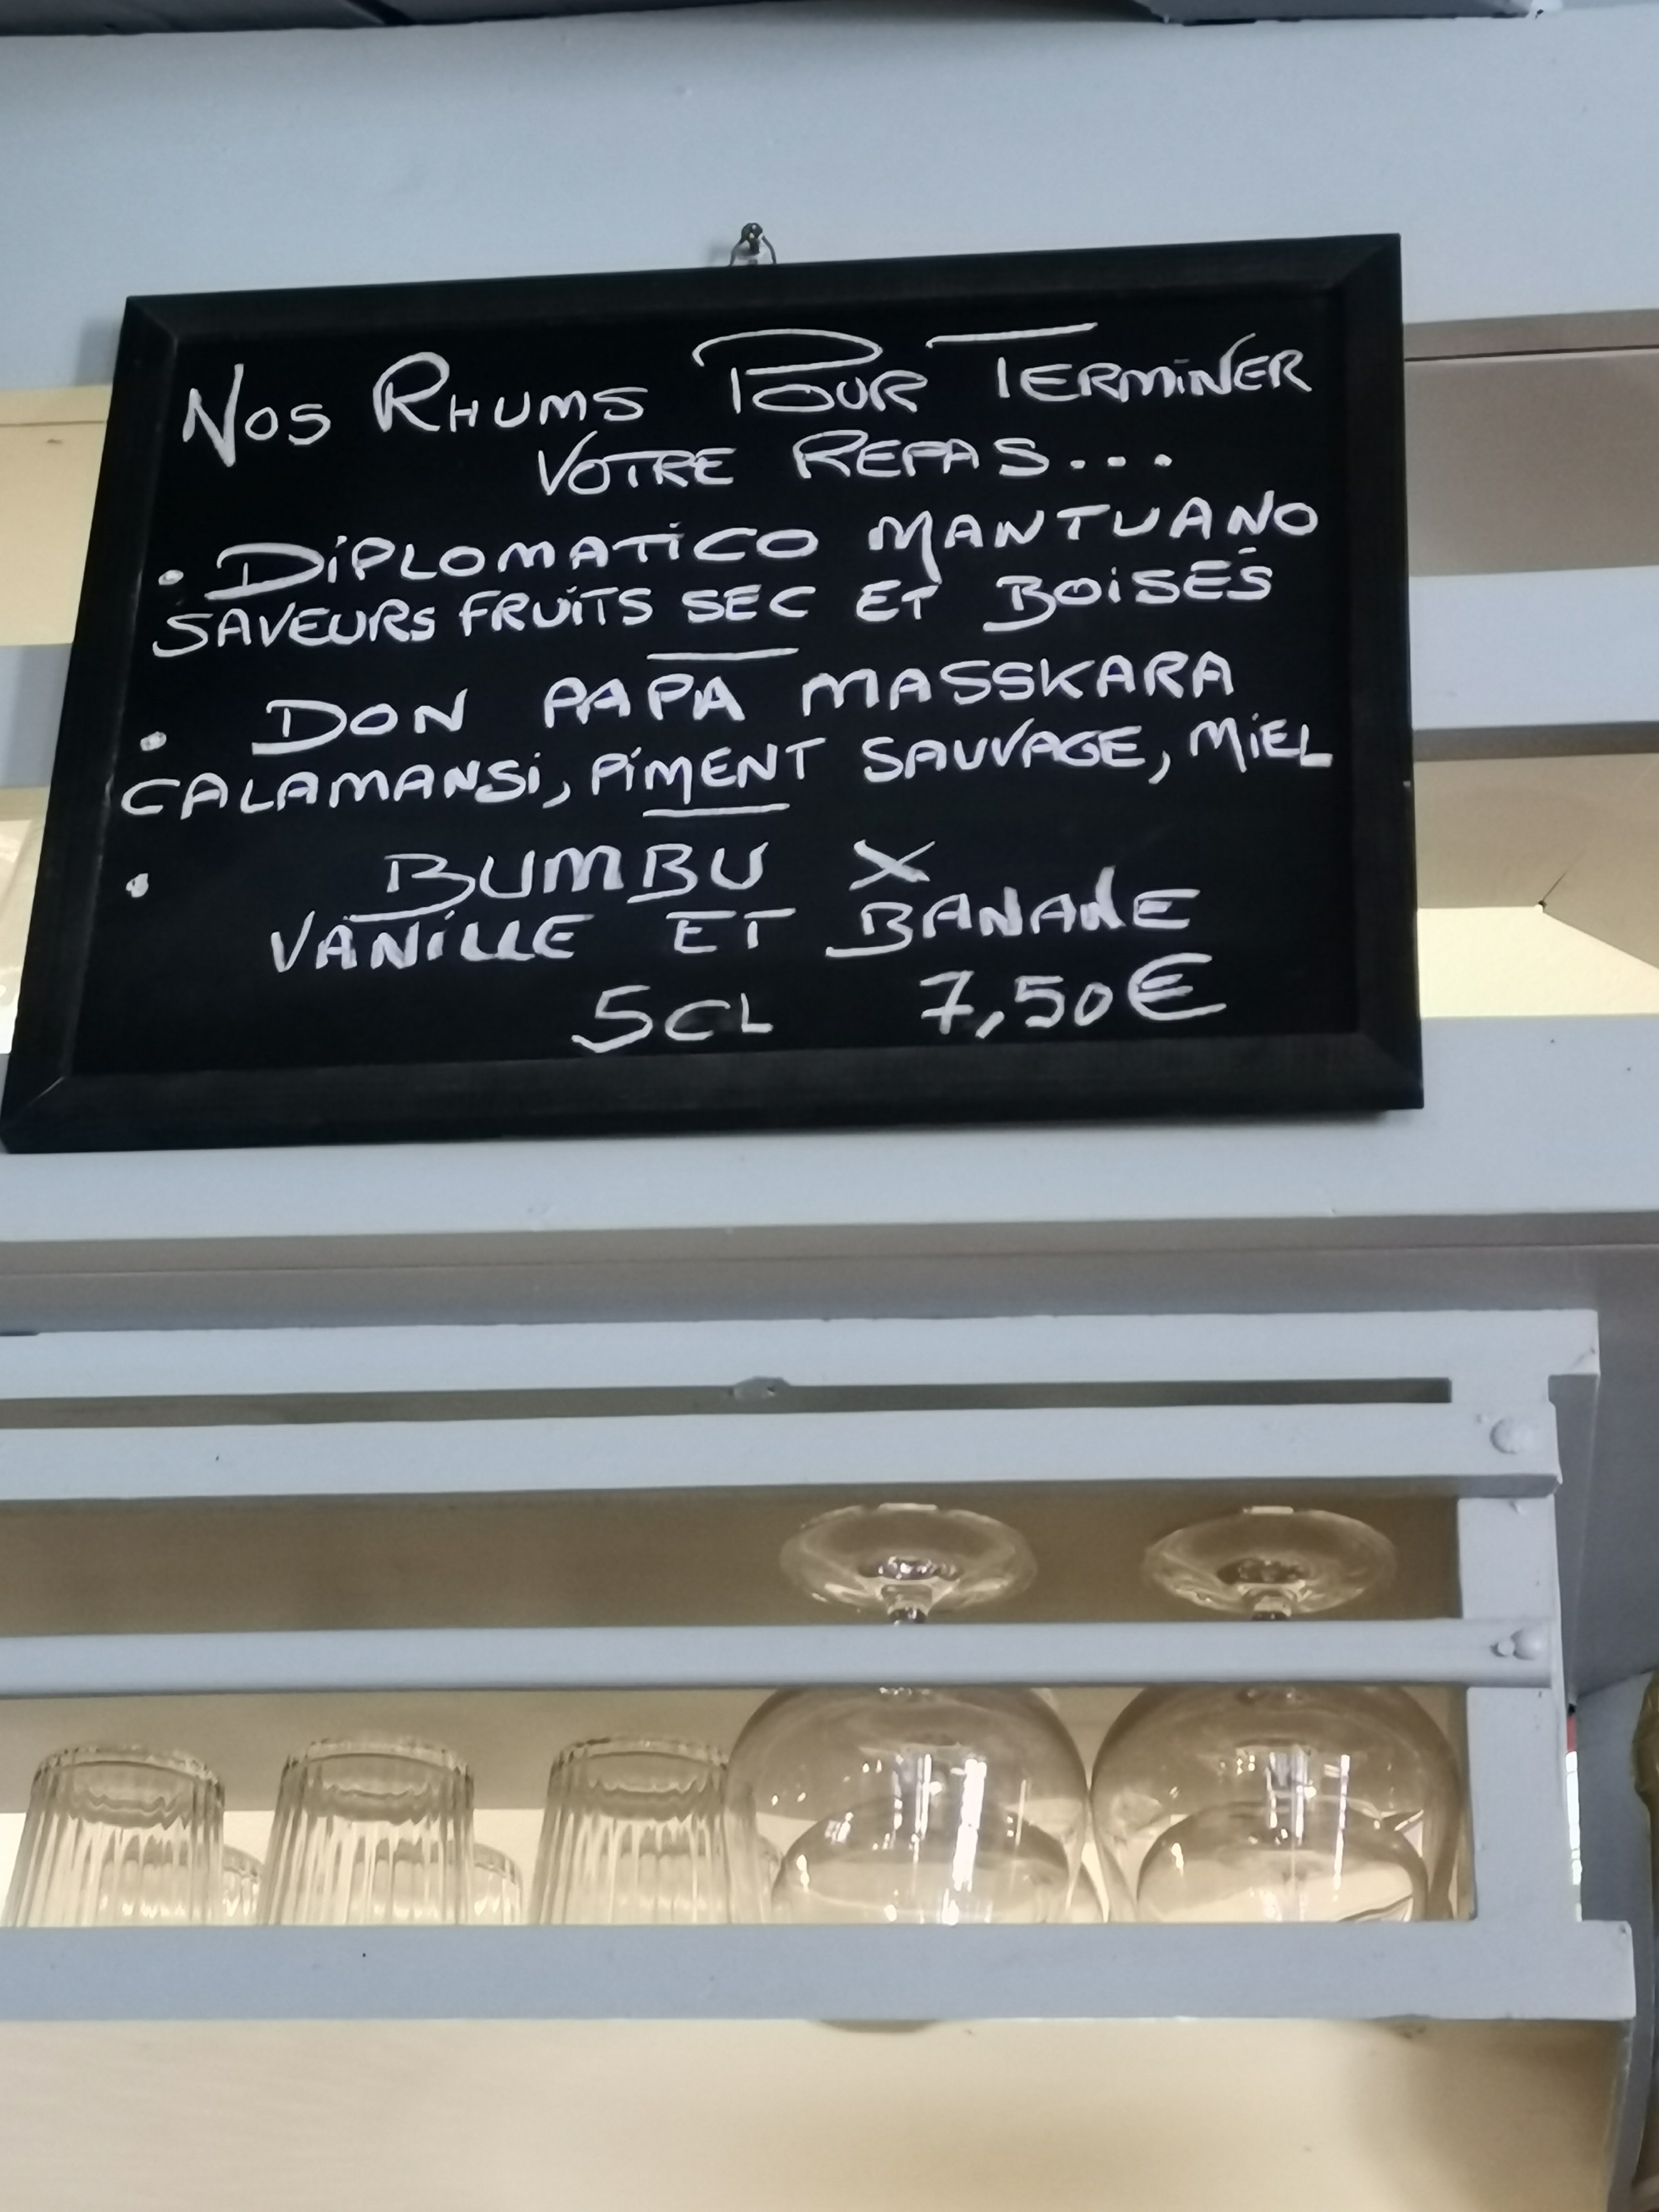 NOS RHUMS POUR TERMINER
VOTRE REPAS...
• DIPLOMATICO MANTUANO
SAVEURS FRUITS SEC ET BOISÉS
• DON PAPA MASSKARA
CALAMANSI, PIMENT SAUVAGE, MIEL
• BUMBU X
VANILLE ET BANANE
5CL 7,50€